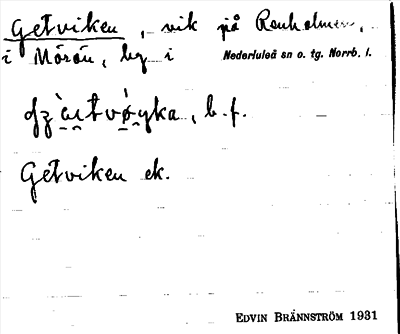 Getviken, vik på Renholmen,
i Mörön, by i Nederluleå sn o. tg. Norrb. l.
b. f.
Getviken ek.
EDVIN BRÄNNSTRÖM 1931